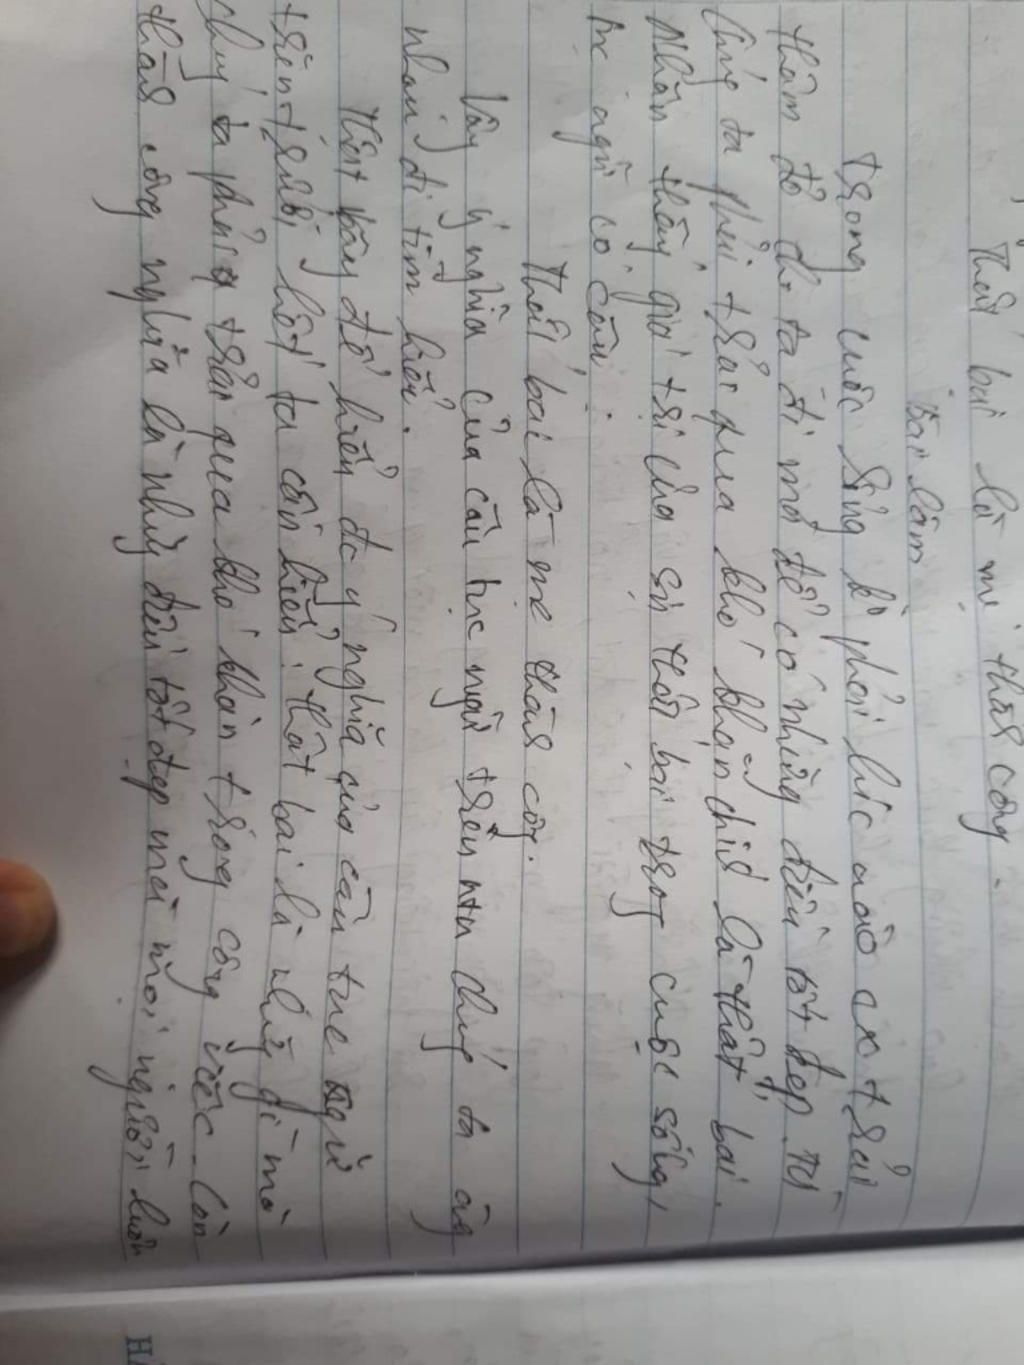 Thất bại là mẹ thàh công.
Bài làm
trong cuộc sống k° phải lúc nào cx trải
thảm đỏ cho ta đi mà để có những điều tốt đẹp thì
chúng ta phải trải qua khó khăn chíh là thất bại.
Nhận thấy giá trị của sự thất bại trog cuộc sống,
tục ngữ có câu:
Thất bại là mẹ thàh côg.
Vậy ý nghĩa của câu tục ngữ trên ntn chúg ta cùg
nhau đi tìm hiểu.
Như vậy để hiểu đc ý nghĩa của câu tục ngữ
trên trước hết ta cần hiểu: thất bại là những gì mà
chúng ta phải trải qua khó khăn trong công việc. Còn
thàh công nghĩa là những điều tốt đẹp mà mọi người luôn